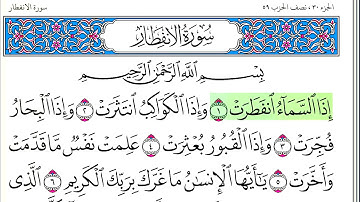 الجزء ٣٠، نصف الحزب ٥٩
سورة الانفطار
سُورَةُ الِانفِطَارِ
بِسْمِ ٱللَّهِ ٱلرَّحْمَٰنِ ٱلرَّحِيمِ
إِذَا ٱلسَّمَآءُ ٱنفَطَرَتْ ١ وَإِذَا ٱلْكَوَاكِبُ ٱنتَثَرَتْ ٢ وَإِذَا ٱلْبِحَارُ
فُجِّرَتْ ٣ وَإِذَا ٱلْقُبُورُ بُعْثِرَتْ ٤ عَلِمَتْ نَفْسٌ مَّا قَدَّمَتْ
وَأَخَّرَتْ ٥ يَٰٓأَيُّهَا ٱلْإِنسَٰنُ مَا غَرَّكَ بِرَبِّكَ ٱلْكَرِيمِ ٦ ٱلَّذِى